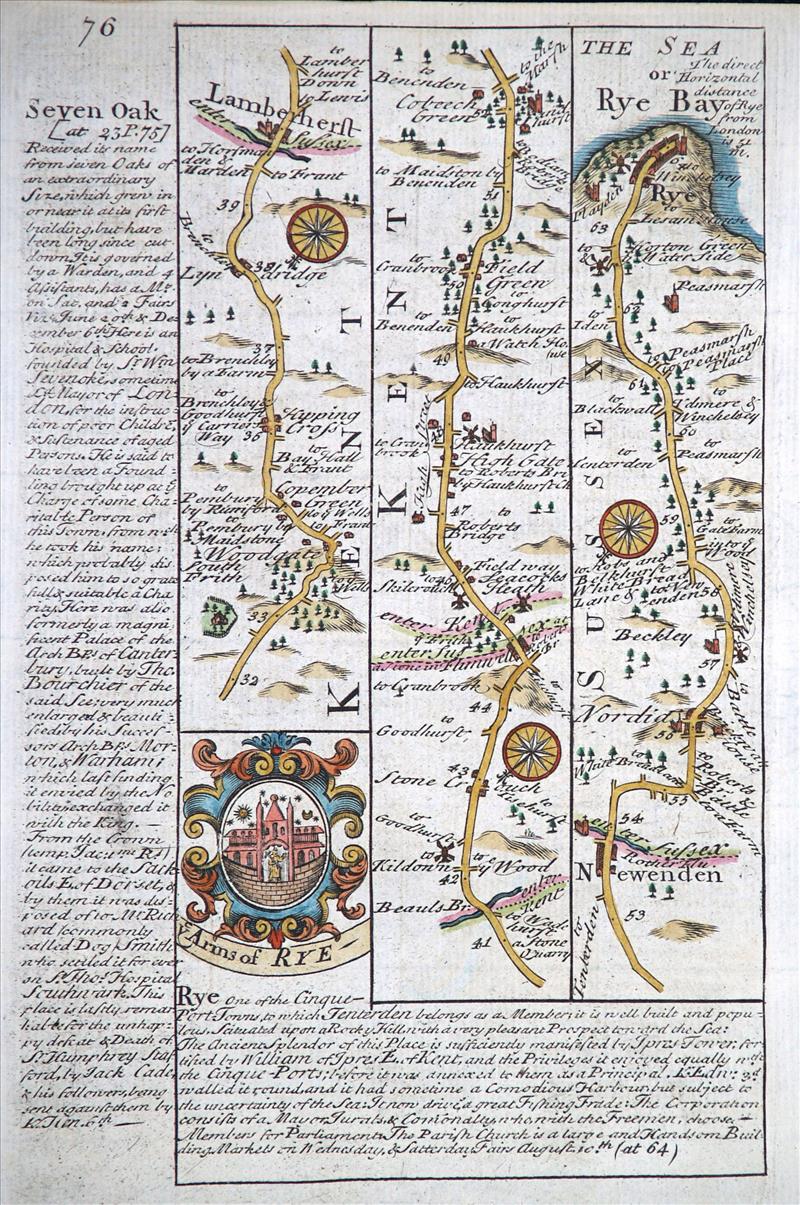 76
Seven Oak
[at 23 P. 75]
Received its name
from seven Oaks of
an extraordinary
Size, which grew in
or near it at its first
building, but have
been long since cut
down. It is governed
by a Warden, and 4
Assistants, has a Mt.
on Sat. and 2 Fairs
Viz. June 29th & De
cember 6th Here is an
Hospital & School,
founded by Sr. Wm
Sevenoke, sometime
Ld. Mayor of Lon-
don, for the instruc-
tion of poor Childrē,
& Sustenance of aged
Persons. He is said to
have been a Found-
ling brought up at ye
Charge of some Cha-
ritable Person of
this Town, from wch
he took his name;
which probably dis-
posed him to so grate
full & suitable a Cha
rity. Here was also
formerly a magni-
ficent Palace of the
Arch BPs. of Canter-
bury, built by Tho.
Bourchier of the
said See; very much
enlarged & beauti-
fied by his Succes-
sors Arch BPs. Mor-
ton, & Warham;
which last finding
it envied by the No
bilitie exchanged it
with the King
From the Crown
(temp. Jac: mi RJ)
it came to the Sack
vils E. of Dorset, &
by them it was dis-
posed of to Mr. Rich
ard (commonly
called Dog) Smith
who settled it for ever
on St. Thos. Hospital
Southwark. This
place is lastly remar
kable for the unhap-
py defeat & Death of
Sr. Humphrey Staf
ford, by Jack Cade,
& his followers, being
sent against them by
K. Hen. 6th
to
Lamber
hurst
Down
to Lewis
Lamberherst
enter
Sussex
to Horsmon
den &
Marden
to Frant
39
to
Brenchley
Lyn
38
dridge
37
to Brenchley
by a Farm
to
Brenchley &
Goodhurst
ye Carriers
Way
Kipping
Cross
36
to
Bay Hall
& Frant
to
Pembury
by Rumford
Copember
Green
to ye Wells
to
Pembury by
Maidstone
to
Frant
Woodgate
South
Frith
to ye
Wells
33
32
KENT
ye Arms of RYE
to the
Marsh
to
Benenden
Cotrech
Green
51
to Maidston by
Benenden
to
Cranbrook
Field
Green
50
to
Conghurst
to
Benenden
to
Haukhurst
a Watch Ho
use
49
to Haukhurst
to Cran
brook
Haukhurst
High Street
High Gate
to Roberts Br.
by Haukhurst Ch.
47
to
Roberts
Bridge
Field way
to
Skilcrouch
46
Seacocks
Heath
enter
Kent
enter Sus
sex at
to Cranbrook
44
to
Goodhurst
43
Stone Cr
Ouch
to
Goodhurst
to
Kildown
to
ye Wood
42
Beauls Br.
enter
Kent
to Wad
hurst
a Stone
Quarry
41
KENT
THE SEA
or
Rye Bay
The direct
Horizontal
distance
of Rye
from
London
is 51
m.
to
Winchelsey
Playden
Rye
Lesam House
63
to
Corton Green
& Water Side
Peasmarsh
62
to
Iden
to Peasmarsh
by Peasmarsh
Place
61
to
Blackwall
Udimere &
Winchelsey
60
to
Tenterden
to
Peasmarsh
59
to
Gate Farm
to ye
Wood
to Kobs and
Belkhurst
White Bread
Lane & to New
enden
58
Beckley
57
Nordia
56
to
White Bread Lane
to
Roberts
Br.
55
54
enter Sussex
Rother Flu
Newenden
to
Tenterden
53
SUSSEX
Rye One of the Cinque-
Port Towns, to which Tenterden belongs as a Member, it is well built and popu-
lous. Scituated upon a Rocky Hill, with a very pleasant Prospect toward the Sea:
The Ancient Splendor of this Place is sufficiently manifested by Ipres Tower, for-
tified by William of Ipres E. of Kent, and the Privileges it enjoyed equally with
the Cinque-Ports; before it was annexed to them as a Principal. K. Edw: 3d
walled it round, and it had sometime a Comodious Harbour but subject to
the uncertainty of the Sea: It now drives a great Fishing Trade: The Corporation
consists of a Mayor, Jurats, & Comonalty, who, with the Freemen, choose
Members for Parliament. The Parish Church is a large and Handsom Buil-
ding. Markets on Wednesday, & Satterday Fairs August 10th (at 64)